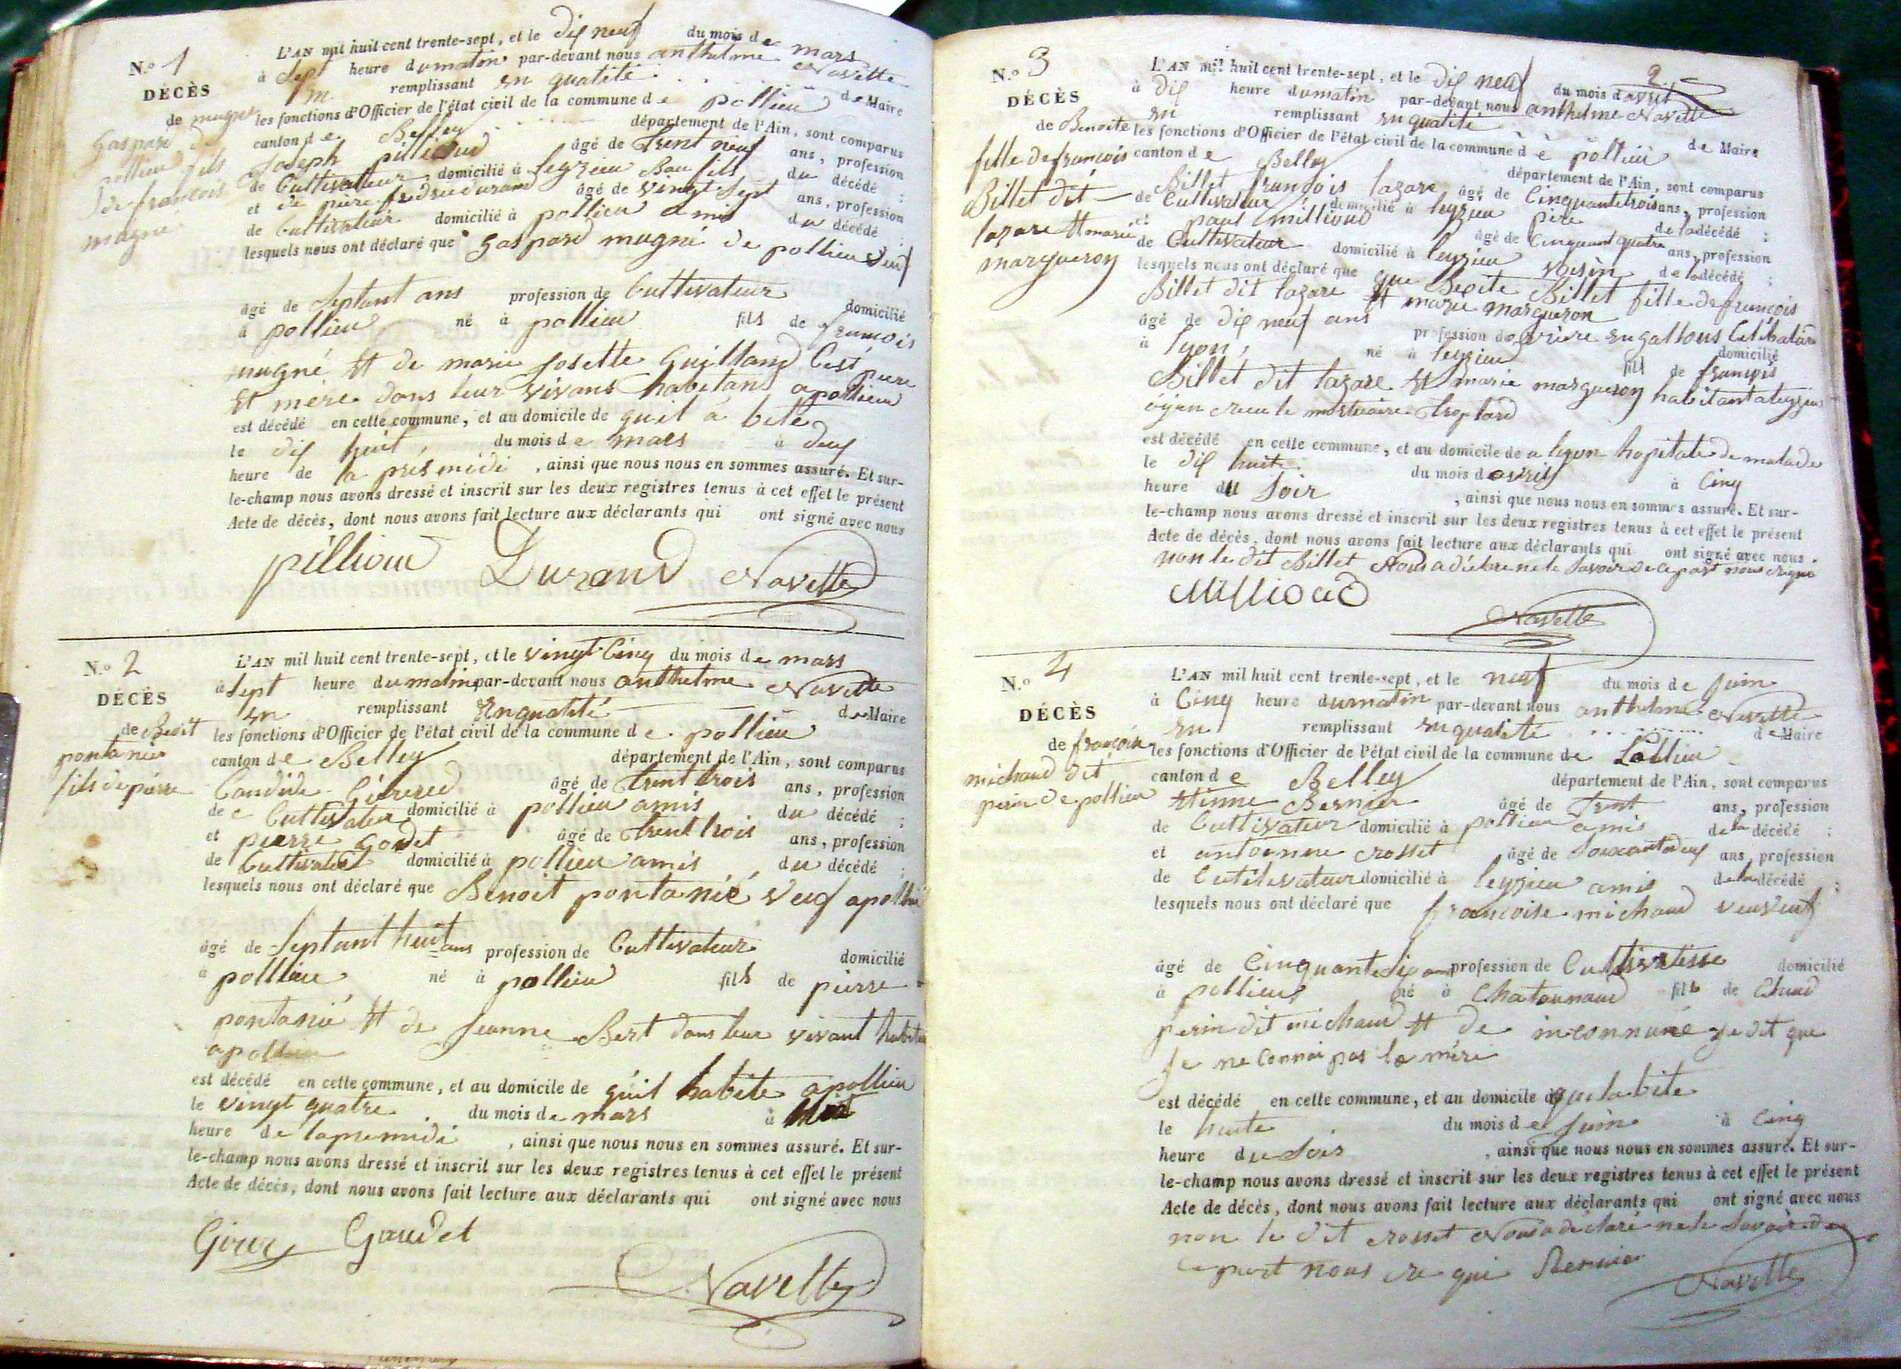 N.º 1
DÉCÈS
de mugné
gaspard de
pollieu fils
de francois
mugné
L'AN mil huit cent trente-sept, et le dix neuf du mois de mars
à sept heure du matin par-devant nous anthelme Navette
en remplissant en qualité de Maire
les fonctions d'Officier de l'état civil de la commune de pollieu
canton de Belley département de l'Ain, sont comparus
Joseph pilliou âgé de trent neuf ans, profession
de Cultivateur domicilié à leyzieu du décédé ;
et de durand âgé de vingt sept ans, profession
de Cultivateur domicilié à pollieu amis du décédé ;
lesquels nous ont déclaré que gaspard mugné de pollieu veuf
âgé de septant ans profession de Cultivateur domicilié
à pollieu né à pollieu fils de francois
mugné et de marie Josette Guilland
et mére dans leur vivans habitans a pollieu
est décédé en cette commune, et au domicile de quil a bite
le dix huit du mois de mars à deux
heure de la prés midi, ainsi que nous nous en sommes assuré. Et sur-
le-champ nous avons dressé et inscrit sur les deux registres tenus à cet effet le présent
Acte de décès, dont nous avons fait lecture aux déclarants qui ont signé avec nous
pilliou Durand Navette
N.º 2
DÉCÈS
de Benoit
pontanié
fils de pierre
L'AN mil huit cent trente-sept, et le vingt Cinq du mois de mars
à sept heure du matin par-devant nous anthelme Navette
en remplissant En qualité de Maire
les fonctions d'Officier de l'état civil de la commune de pollieu
canton de Belley département de l'Ain, sont comparus
Candide âgé de trent trois ans, profession
de Cultivateur domicilié à pollieu amis du décédé ;
et pierre Godet âgé de trent trois ans, profession
de Cultivateur domicilié à pollieu amis du décédé ;
lesquels nous ont déclaré que Benoit pontanié veuf a pollieu
âgé de septant huit ans profession de Cultivateur domicilié
à pollieu né à pollieu fils de pierre
pontanié et de Jeanne Bert dans leur vivant
a pollieu
est décédé en cette commune, et au domicile de quil habite a pollieu
le vingt quatre du mois de mars à
heure de lapremidi, ainsi que nous nous en sommes assuré. Et sur-
le-champ nous avons dressé et inscrit sur les deux registres tenus à cet effet le présent
Acte de décès, dont nous avons fait lecture aux déclarants qui ont signé avec nous
Gaudet
Navette
2
N.º 3
DÉCÈS
de Benoite
fille de francois
Billet dit
lazare et marie
margueron
L'AN mil huit cent trente-sept, et le dix neuf du mois d avril
à dix heure du matin par-devant nous anthelme Navette
en remplissant en qualité de Maire
les fonctions d'Officier de l'état civil de la commune de pollieu
canton de Belley département de l'Ain, sont comparus
Billet francois lazare âgé de Cinquante trois ans, profession
de Cultivateur domicilié à leyzieu père de la décédé ;
et millioud âgé de Cinquant quatre ans, profession
de Cultivateur domicilié à leyzieu voisin de la décédé ;
lesquels nous ont déclaré que que Benoite Billet fille de francois
Billet dit lazare et marie margueron
âgé de dix neuf ans profession de en gallons Celibataire
à lyon, né à leyzieu domicilié fils de francois
Billet dit lazare et marie margueron habitant a leyzieu
mortuaire trop tard
est décédé en cette commune, et au domicile de a lyon hopitale de malade
le dix huite du mois d avril à Cinq
heure du soir, ainsi que nous nous en sommes assuré. Et sur-
le-champ nous avons dressé et inscrit sur les deux registres tenus à cet effet le présent
Acte de décès, dont nous avons fait lecture aux déclarants qui ont signé avec nous.
non le dit Billet Nous a déclare ne le savoir de
Millioud
Navette
N.º 4
DÉCÈS
de francoise
michaud dit
perin de pollieu
L'AN mil huit cent trente-sept, et le neuf du mois de Juin
à Cinq heure du matin par-devant nous anthelme Navette
en remplissant en qualité de Maire
les fonctions d'Officier de l'état civil de la commune de Pollieu
canton de Belley département de l'Ain, sont comparus
Etienne Bernier âgé de Trent ans, profession
de Cultivateur domicilié à pollieu amis de la décédé ;
et antoenne crosset âgé de soixantedeux ans, profession
de Cutilivateur domicilié à leyzieu amis de la décédé ;
lesquels nous ont déclaré que francoise michaud
âgé de Cinquantedix ans profession de Cultivatisse domicilié
à pollieu né à Chatonnaud fils de Claud
perin dit michaud et de inconnue je dit que
Je ne Connoi pas la mére
est décédé en cette commune, et au domicile de quelabite
le huite du mois de Juin à Cinq
heure du soir, ainsi que nous nous en sommes assuré. Et sur-
le-champ nous avons dressé et inscrit sur les deux registres tenus à cet effet le présent
Acte de décès, dont nous avons fait lecture aux déclarants qui ont signé avec nous
non le dit crosset Nous a déclaré ne le savoir de
part nous qui Bernier
Navette